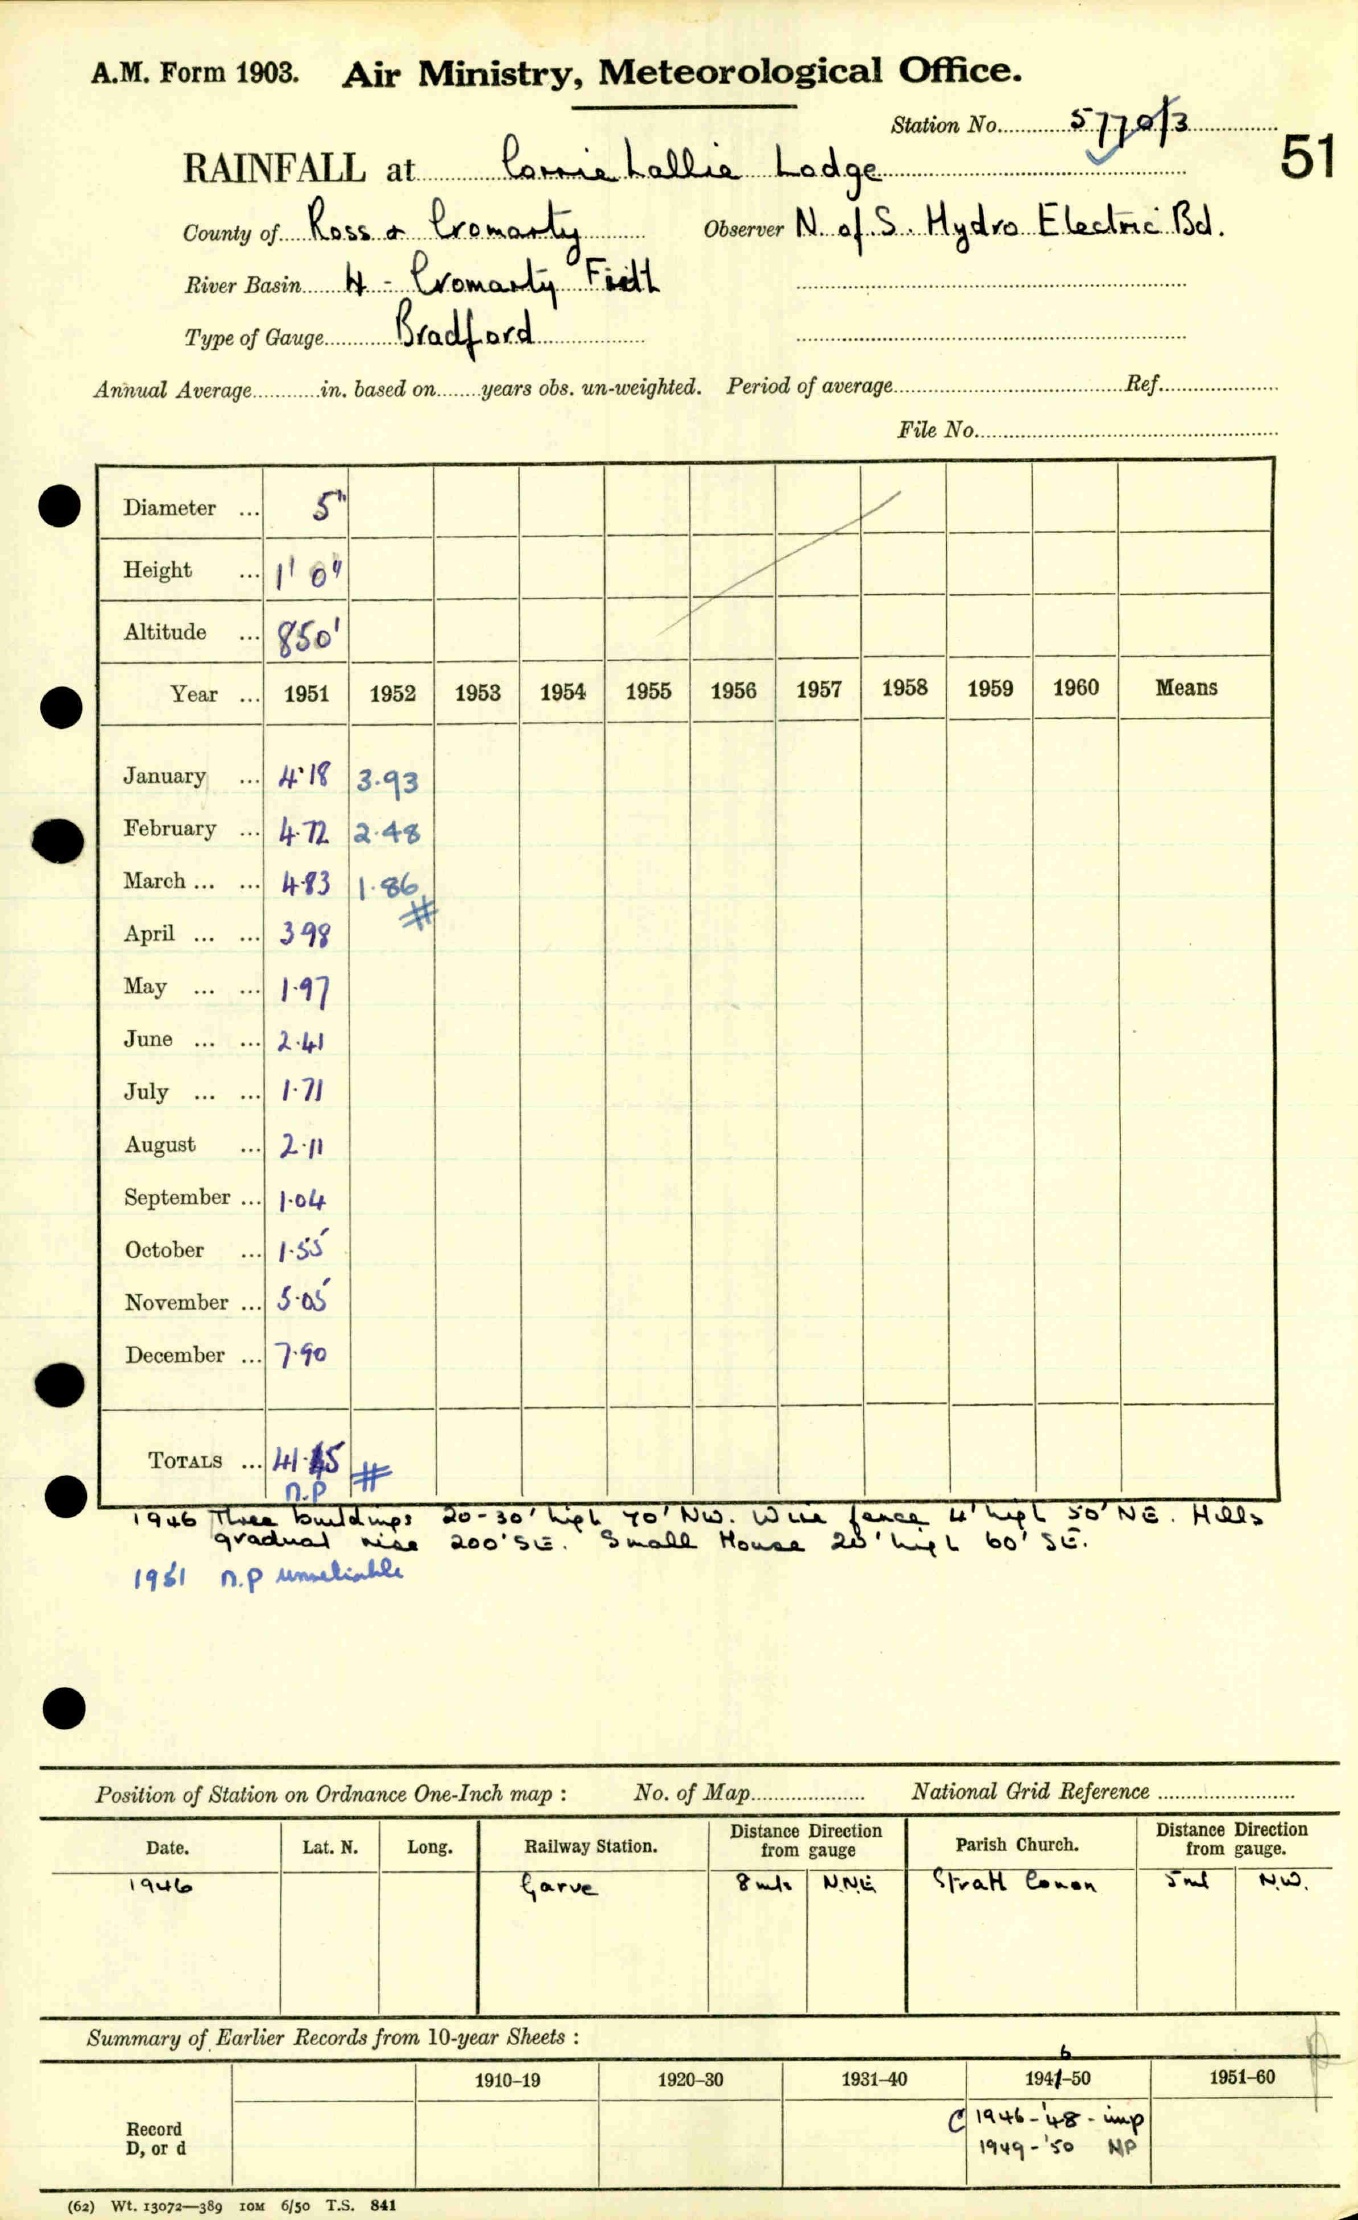 A.M. Form 1903. Air Ministry, Meteorological Office.
Station No. 5770/3
51
RAINFALL at Corrie Lallie Lodge
County of Ross & Cromarty Observer N. of S. Hydro Electric Bd.
River Basin H - Cromarty Firth
Type of Gauge Bradford
Annual Average in. based on years obs. un-weighted. Period of average Ref.
File No.
Diameter ... 5"
Height ... 1' 0"
Altitude ... 850'
Year ... 1951 1952 1953 1954 1955 1956 1957 1958 1959 1960 Means
January ... 4.18 3.93
February ... 4.72 2.48
March ... ... 4.83 1.86
#
April ... ... 3.98
May ... ... 1.97
June ... ... 2.41
July ... ... 1.71
August ... 2.11
September ... 1.04
October ... 1.55
November ... 5.05
December ... 7.90
TOTALS ... 41.45 #
n.p
1946 Three buildings 20-30' high 70' NW. Wire fence 4' high 50' NE. Hills
gradual rise 200' SE. Small House 20' high 60' SE.
1951 n.p unreliable
Position of Station on Ordnance One-Inch map : No. of Map National Grid Reference
Date. Lat. N. Long. Railway Station. Distance from Direction gauge Parish Church. Distance from Direction gauge.
1946 Garve 8 mls N.N.E Strath Conon 5 ml N.W.
Summary of Earlier Records from 10-year Sheets :
6
1910–19 1920–30 1931–40 1941–50 1951–60
Record D, or d
C 1946-'48 - imp
1949-'50 NP
(62) Wt. 13072—389 10M 6/50 T.S. 841